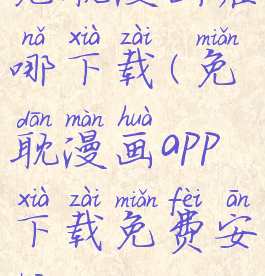 nǎ xià zài miǎn
哪下载(免
dān màn huà
耽漫画app
xià zài miǎn fèi ān
下载免费安